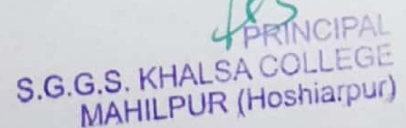 PRINCIPAL
S.G.G.S. KHALSA COLLEGE
MAHILPUR (Hoshiarpur)